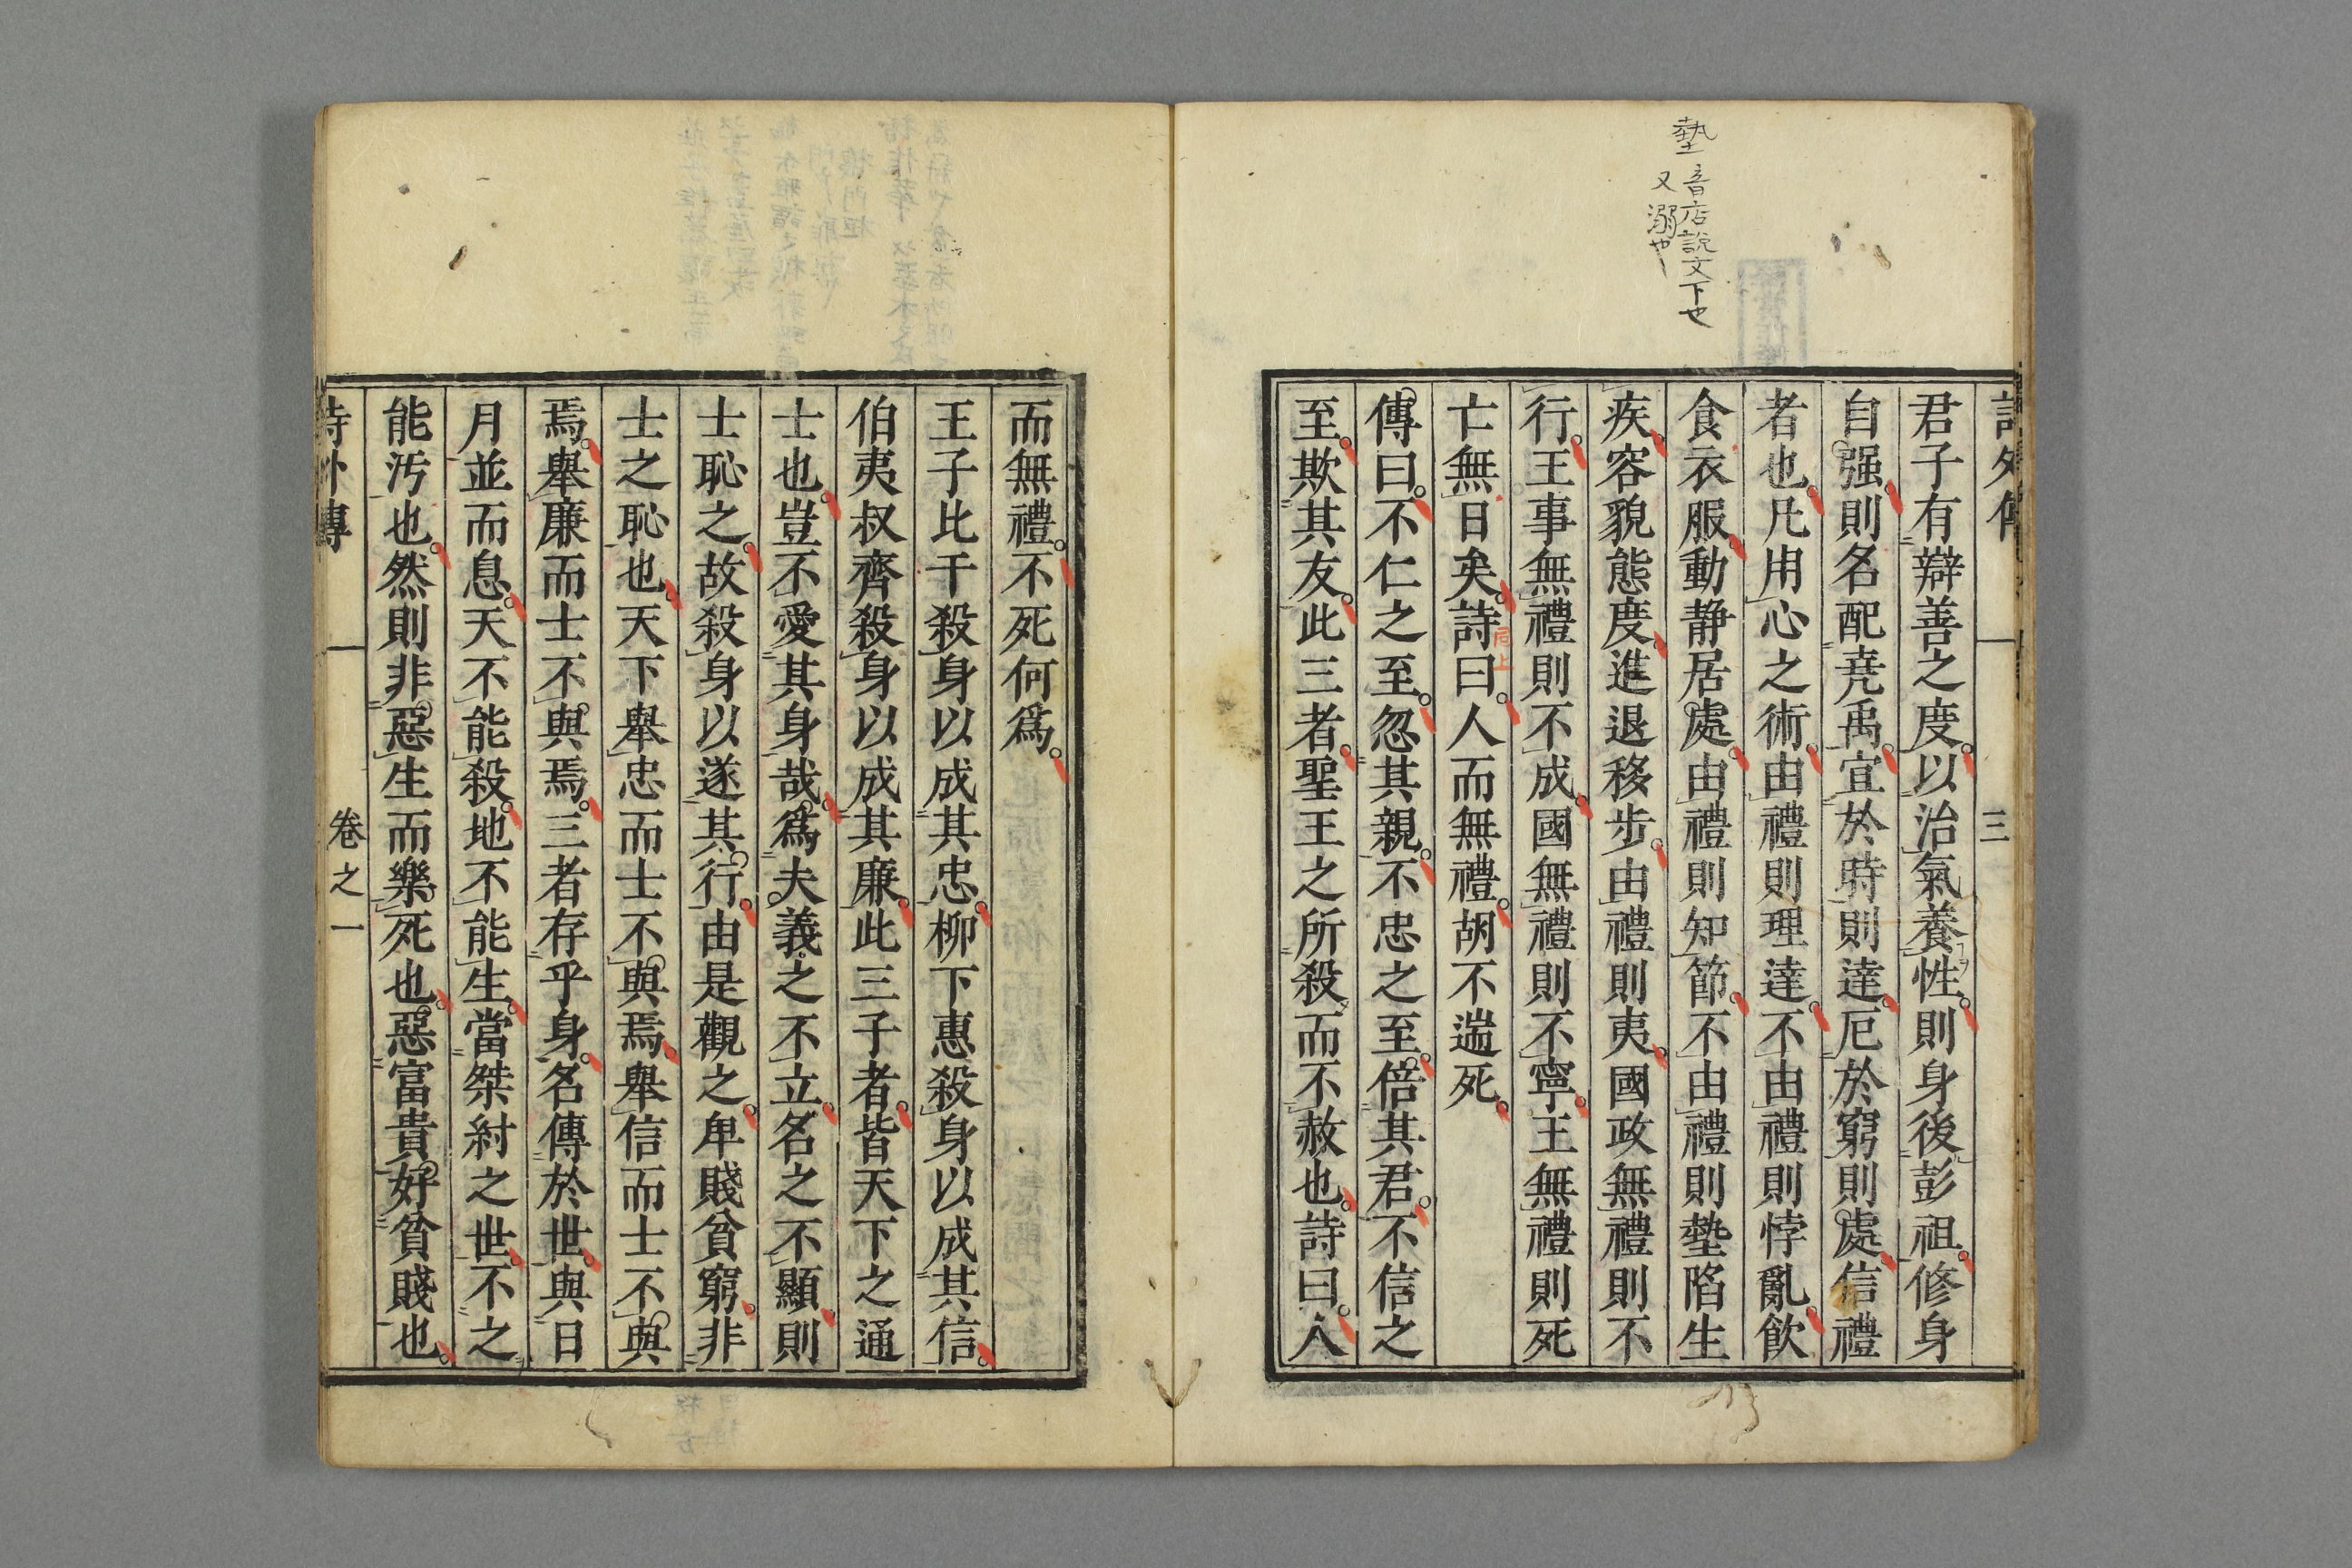 墊音店說文下也
又溺也
三
君子有辯善之度以治氣養性則身後彭祖修身
自强則名配堯禹宜於時則達厄於窮則處信禮
者也凡用心之術由禮則理達不由禮則悖亂飲
食衣服動静居處由禮則知節不由禮則墊陷生
疾容貌態度進退移步由禮則夷國政無禮則不
行王事無禮則不成國無禮則不寧王無禮則死
亡無日矣詩曰人而無禮胡不遄死
同上
傳曰不仁之至忽其親不忠之至倍其君不信之
至欺其友此三者聖王之所殺而不赦也詩曰人
而無禮不死何爲
王子比干殺身以成其忠柳下惠殺身以成其信
伯夷叔齊殺身以成其廉此三子者皆天下之通
士也豈不愛其身哉爲夫義之不立名之不顯則
士恥之故殺身以遂其行由是觀之卑賤貧窮非
士之恥也天下舉忠而士不與焉舉信而士不與
焉舉廉而士不與焉三者存乎身名傳於世與日
月並而息天不能殺地不能生當桀紂之世不之
能汚也然則非惡生而樂死也惡富貴好貧賤也
詩外傳 卷之一